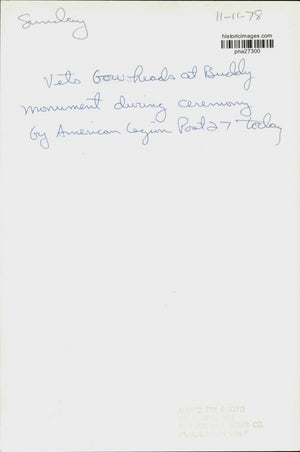 Sunday
11-11-78
historicimages.com
pna27300
Vets bow heads at Buddy
monument during ceremony
by American Legion Post 27 today
PHOTO
CO.